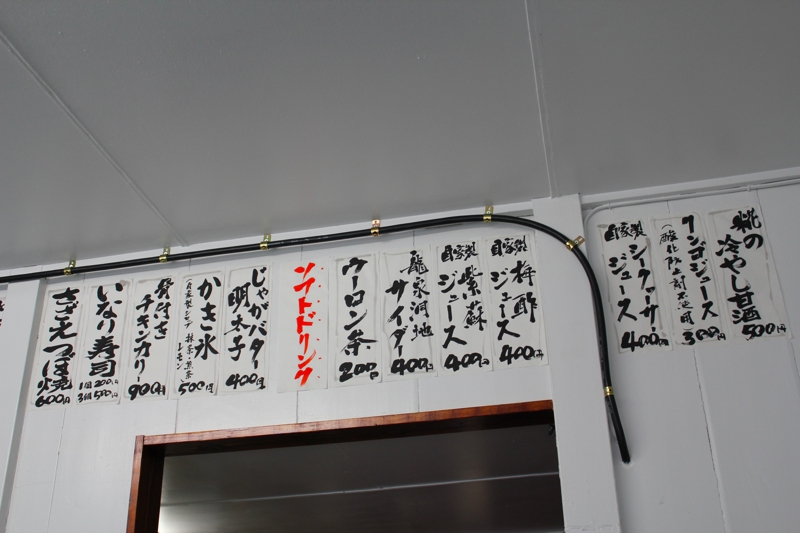 糀の
冷やし甘酒
500円
リンゴジュース
(酸化防止剤不使用)
300円
自家製
シークァーサー
ジュース
400円
自家製
梅酢
ジュース
400円
自家製
紫蘇
ジュース
400円
龍泉洞地
サイダー
400円
ウーロン茶
200円
ソフトドリンク
じゃがバター
明太子
400円
かき氷
自家製シロップ
レモン
500円
骨付き
チキンカリー
900円
いなり寿司
1個200円
3個500円
さざえつぼ焼
600円